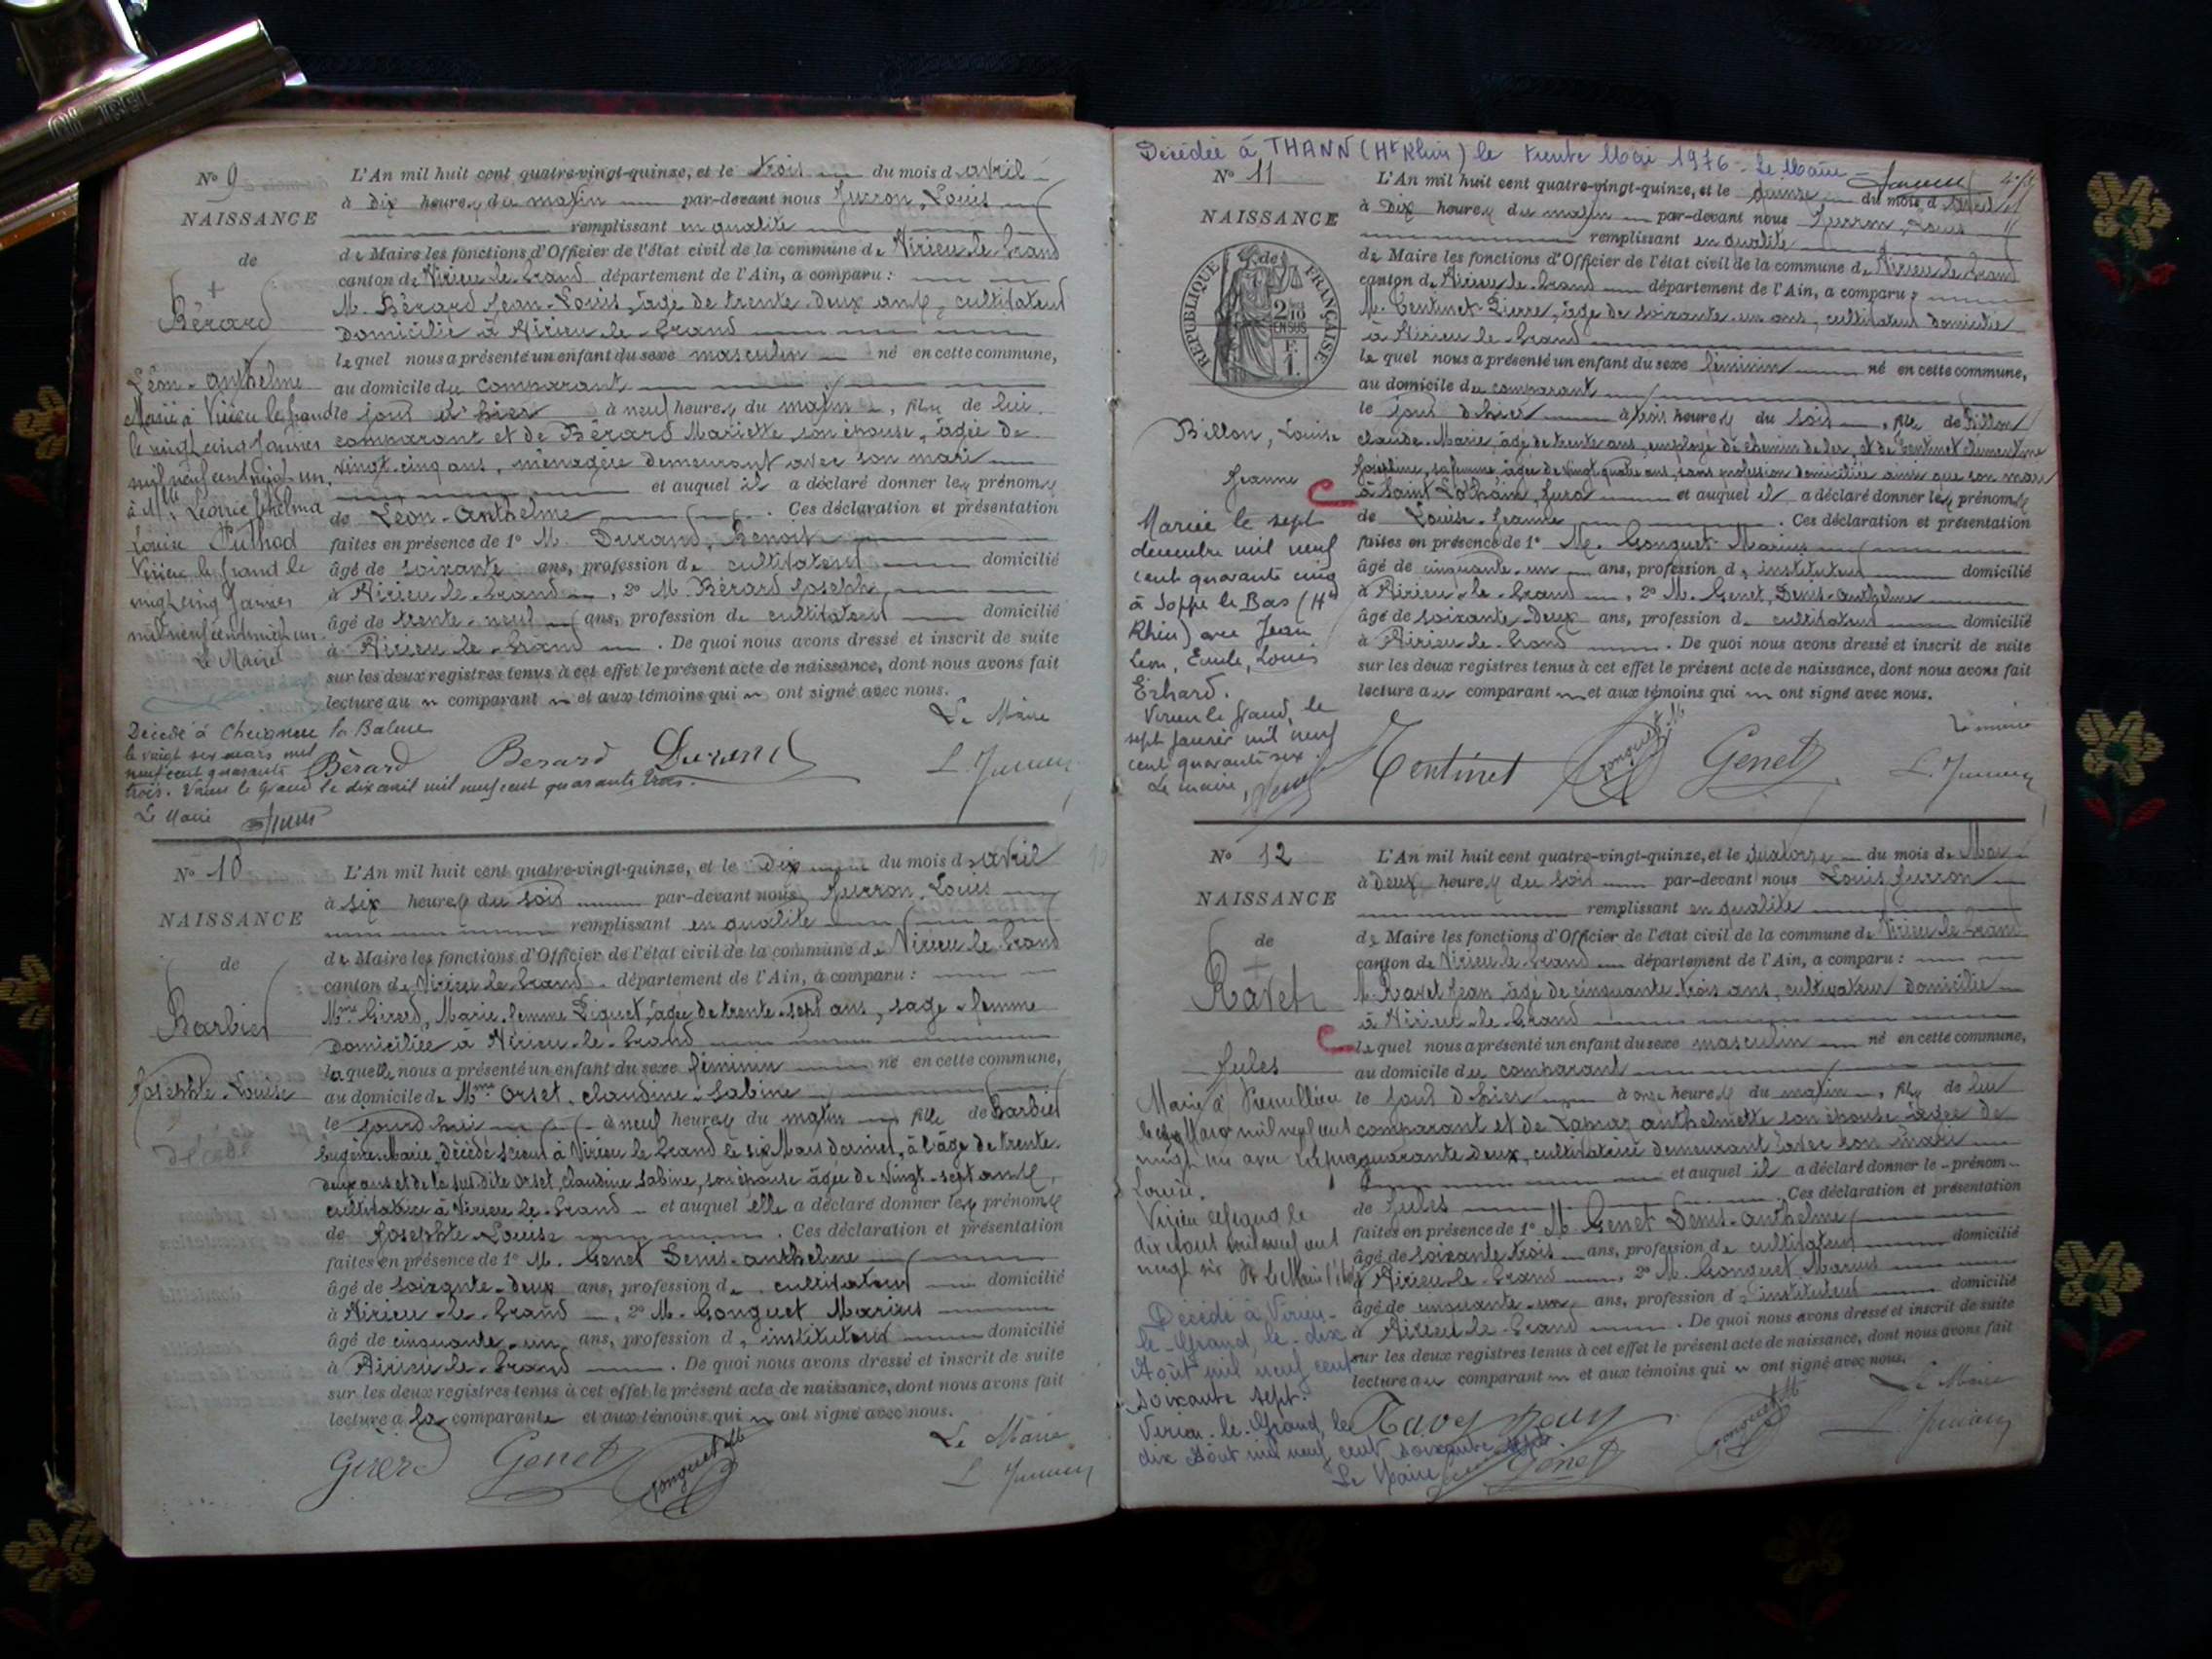 N° 9
NAISSANCE
de
Bérard
Léon-Anthelme
Marié à Virieu le grand
le vingt cinq janvier
mil neuf cent vingt un
à Mlle Léonie Thelma
Louise Puthod
Virieu le grand le
vingt cinq Janvier
mil neuf cent vingt un
Le Maire
L'An mil huit cent quatre-vingt-quinze, et le trois du mois d avril
à dix heures du matin par-devant nous Jurron, Louis
remplissant en qualité
de Maire les fonctions d'Officier de l'état civil de la commune de Virieu-le-Grand
canton de Virieu-le-Grand département de l'Ain, a comparu :
M. Bérard Jean-Louis, âgé de trente-deux ans, cultivateur
domicilié à Virieu-le-Grand
lequel nous a présenté un enfant du sexe masculin né en cette commune,
au domicile du comparant
le jour d'hier à neuf heures du matin, fils de lui
comparant et de Bérard Mariette, son épouse, âgée de
vingt-cinq ans, ménagère demeurant avec son mari
et auquel il a déclaré donner les prénoms
de Léon-Anthelme. Ces déclaration et présentation
faites en présence de 1° M. Durand, Benoit
âgé de soixante ans, profession de cultivateur domicilié
à Virieu-le-Grand, 2° M. Bérard Joseph
âgé de trente-neuf ans, profession de cultivateur domicilié
à Virieu-le-Grand. De quoi nous avons dressé et inscrit de suite
sur les deux registres tenus à cet effet le présent acte de naissance, dont nous avons fait
lecture au comparant et aux témoins qui ont signé avec nous.
Le Maire
Décédé à la Balme
le vingt six mars mil
neuf cent quarante
trois. Virieu le Grand le dix avril mil neuf cent quarante trois.
Le Maire
Bérard Berard Durand
N° 10
NAISSANCE
de
Barbier
Josephte-Louise
décédé
L'An mil huit cent quatre-vingt-quinze, et le dix du mois d avril
à six heures du soir par-devant nous Jurron, Louis
remplissant en qualité
de Maire les fonctions d'Officier de l'état civil de la commune de Virieu-le-Grand
canton de Virieu-le-Grand département de l'Ain, a comparu :
Mme Girerd, Marie, femme Piquet, âgée de trente-sept ans, sage-femme
domiciliée à Virieu-le-Grand
laquelle nous a présenté un enfant du sexe féminin né en cette commune,
au domicile de Mme Orset, Claudine-Sabine
le jourd'hui à neuf heures du matin fille de Barbier
Eugène Marie, décédé à Virieu le Grand le six Mars dernier, à l'âge de trente-
deux ans et de la susdite Orset, Claudine Sabine, son épouse âgée de vingt-sept ans,
cultivatrice à Virieu-le-Grand et auquel elle a déclaré donner les prénoms
de Josephte-Louise. Ces déclaration et présentation
faites en présence de 1° M. Genet Denis-Anthelme
âgé de soixante-deux ans, profession de cultivateur domicilié
à Virieu-le-Grand, 2° M. Gonguet Marius
âgé de cinquante-un ans, profession d'instituteur domicilié
à Virieu-le-Grand. De quoi nous avons dressé et inscrit de suite
sur les deux registres tenus à cet effet le présent acte de naissance, dont nous avons fait
lecture à la comparante et aux témoins qui ont signé avec nous.
Le Maire
Girerd Genet Gonguet M
Décédée à THANN (Ht Rhin) le trente Mai 1976 - Le Maire
N° 11
NAISSANCE
RÉPUBLIQUE FRANÇAISE
2/10
EN SUS
F.
1.
de
Billon, Louise
Jeanne
Mariée le sept
decembre mil neuf
cent quarante cinq
à Soppe le Bas (Ht
Rhin) avec Jean
Leon, Emile, Louis
Erhard.
Virieu le Grand, le
sept janvier mil neuf
cent quarante six.
Le maire,
L'An mil huit cent quatre-vingt-quinze, et le quinze du mois d avril
à dix heures du matin par-devant nous Jurron, Louis
remplissant en qualité
de Maire les fonctions d'Officier de l'état civil de la commune de Virieu-le-Grand
canton de Virieu-le-Grand département de l'Ain, a comparu :
M. Tentinet Pierre, âgé de soixante-un ans, cultivateur domicilié
à Virieu-le-Grand
lequel nous a présenté un enfant du sexe féminin né en cette commune,
au domicile du comparant
le jour d'hier à trois heures du soir, fille de Billon
Claude-Marie, âgé de trente ans, employé de chemin de fer, et de Tentinet Clémentine
Joséphine, sa femme, âgée de vingt-quatre ans, sans profession domiciliée ainsi que son mari
à Saint Lothain, Jura et auquel il a déclaré donner les prénoms
de Louise-Jeanne. Ces déclaration et présentation
faites en présence de 1° M. Gonguet Marius
âgé de cinquante-un ans, profession d'instituteur domicilié
à Virieu-le-Grand, 2° M. Genet, Denis-Anthelme
âgé de soixante-deux ans, profession de cultivateur domicilié
à Virieu-le-Grand. De quoi nous avons dressé et inscrit de suite
sur les deux registres tenus à cet effet le présent acte de naissance, dont nous avons fait
lecture au comparant et aux témoins qui ont signé avec nous.
Le maire
Tentinet Gonguet M Genet
N° 12
NAISSANCE
de
Ravet
Jules
Marié à Vieu
mil neuf cent
vingt un avec
Louise.
Virieu le grand le
dix août mil neuf cent
vingt six
Décédé à Virieu-
le-Grand, le dix
Août mil neuf cent
soixante sept.
Virieu-le-Grand, le
dix Août mil neuf cent soixante sept.
Le Maire
L'An mil huit cent quatre-vingt-quinze, et le quatorze du mois de Mai
à deux heures du soir par-devant nous Louis Jurron
remplissant en qualité
de Maire les fonctions d'Officier de l'état civil de la commune de Virieu-le-Grand
canton de Virieu-le-Grand département de l'Ain, a comparu :
M. Ravet Jean, âgé de cinquante-trois ans, cultivateur domicilié
à Virieu-le-Grand
lequel nous a présenté un enfant du sexe masculin né en cette commune,
au domicile du comparant
le jour d'hier à onze heures du matin, fils de lui
comparant et de Lapraz Anthelmette son épouse âgée de
quarante-deux, cultivatrice demeurant avec son mari
et auquel il a déclaré donner le prénom
de Jules. Ces déclaration et présentation
faites en présence de 1° M Genet Denis-Anthelme
âgé de soixante trois ans, profession de cultivateur domicilié
à Virieu-le-Grand, 2° M. Gonguet Marius
âgé de cinquante-un ans, profession d'instituteur domicilié
à Virieu-le-Grand. De quoi nous avons dressé et inscrit de suite
sur les deux registres tenus à cet effet le présent acte de naissance, dont nous avons fait
lecture au comparant et aux témoins qui ont signé avec nous.
Le Maire
Ravet Jean Gonguet M
Genet